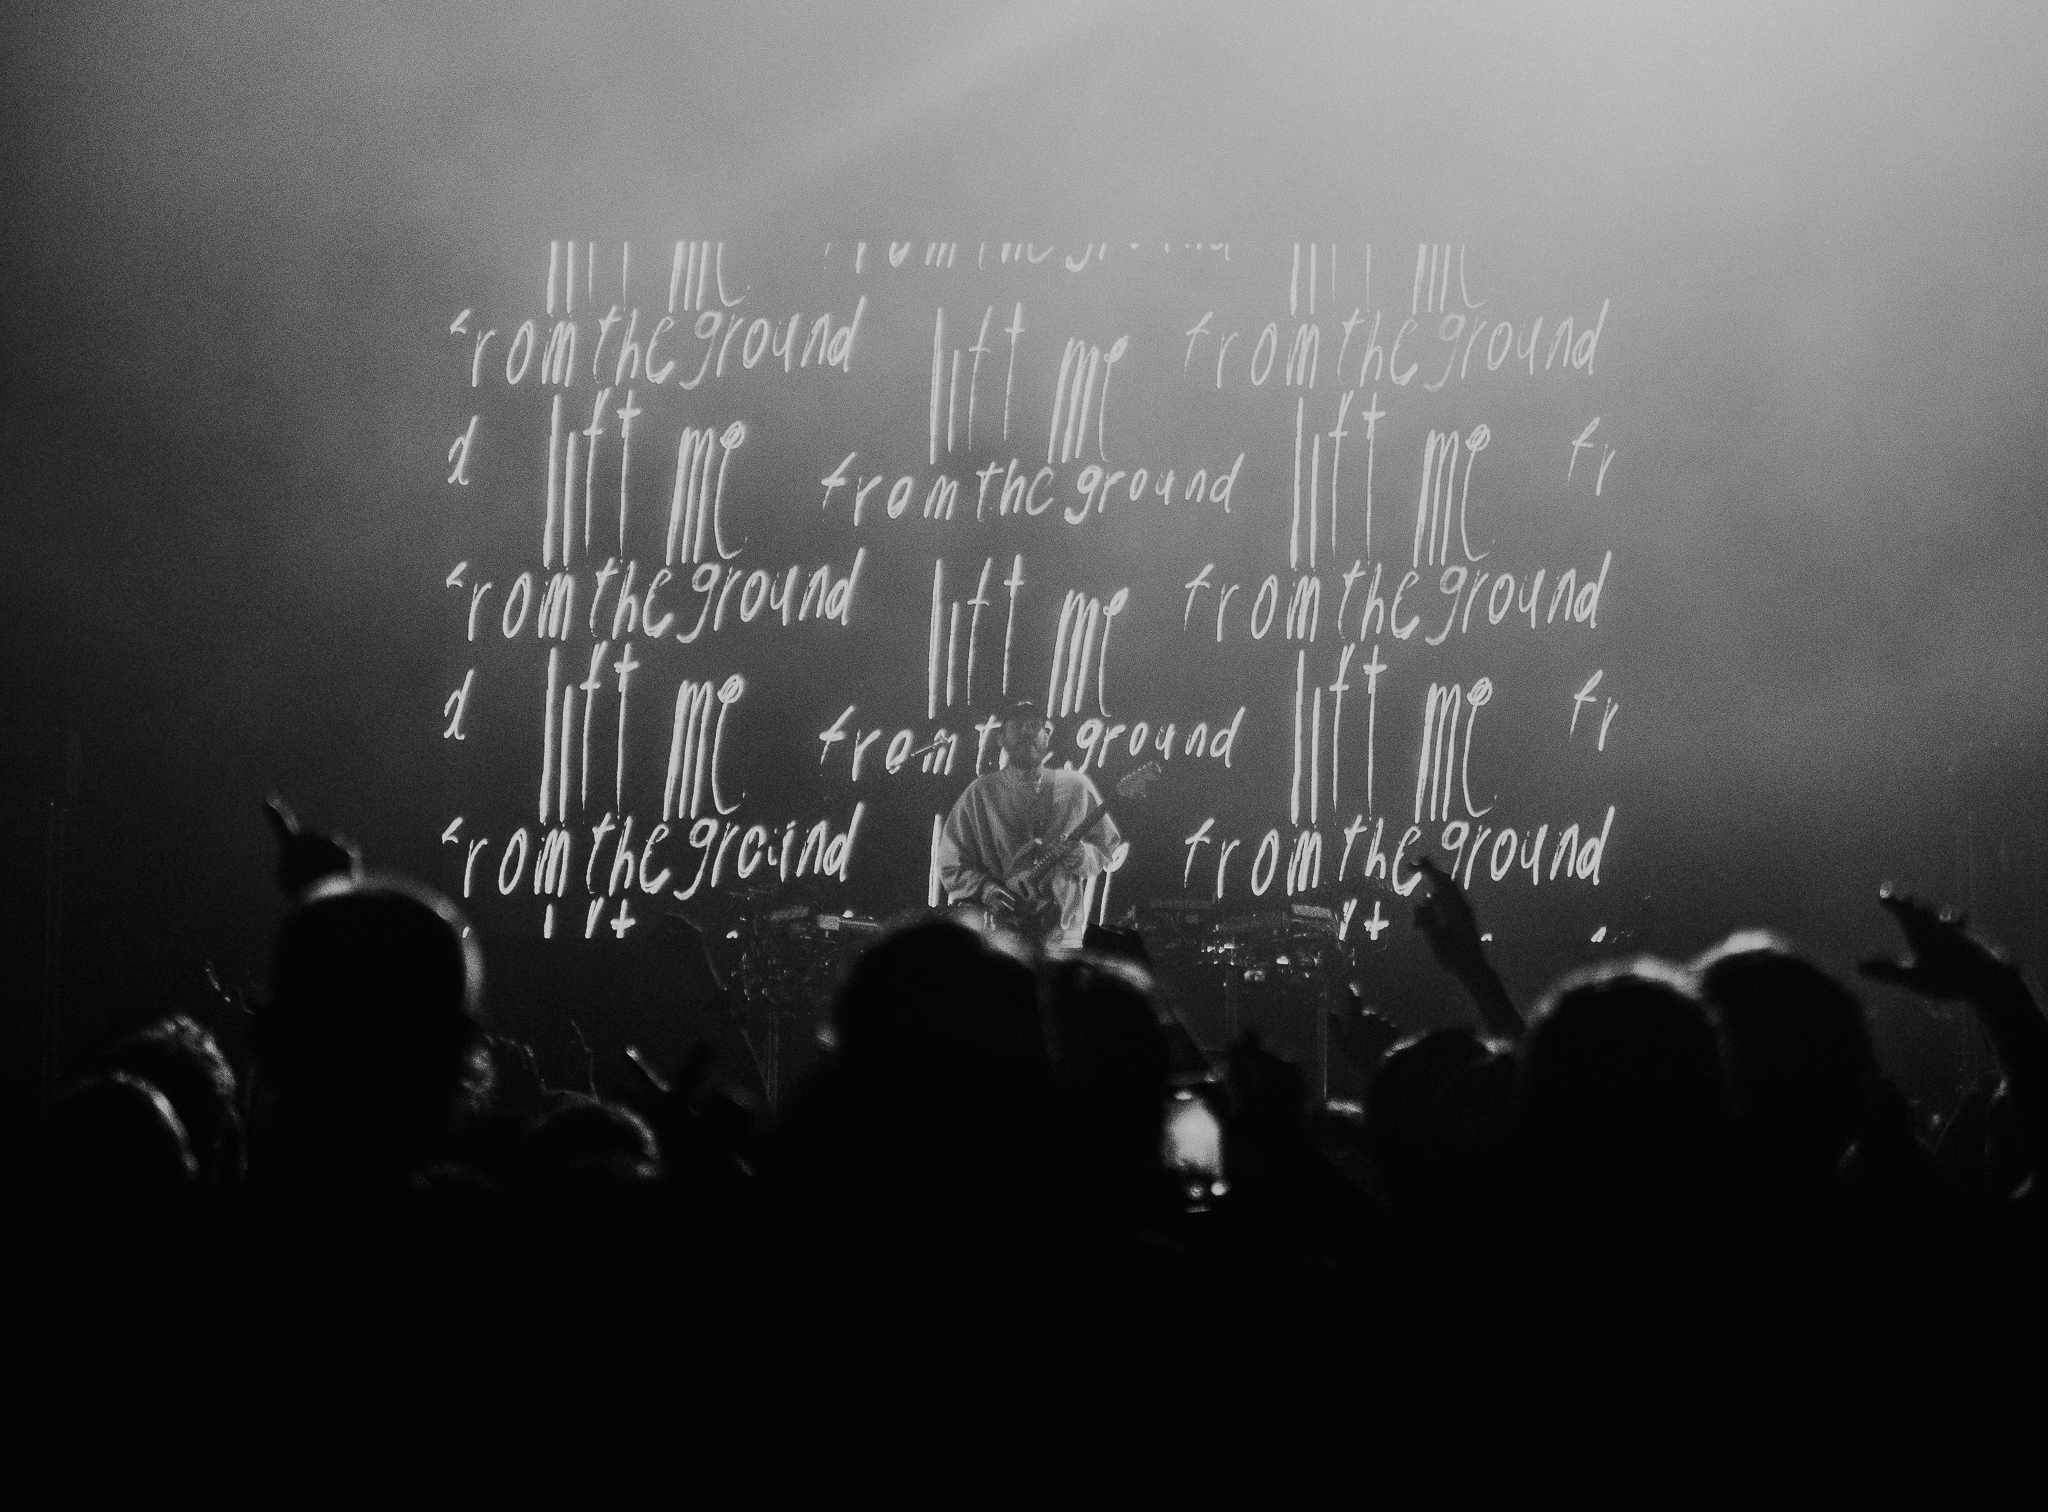 lift me from the ground lift me
from the ground lift me from the ground
d lift me from the ground lift me fr
from the ground lift me from the ground
d lift me from the ground lift me fr
from the ground from the ground